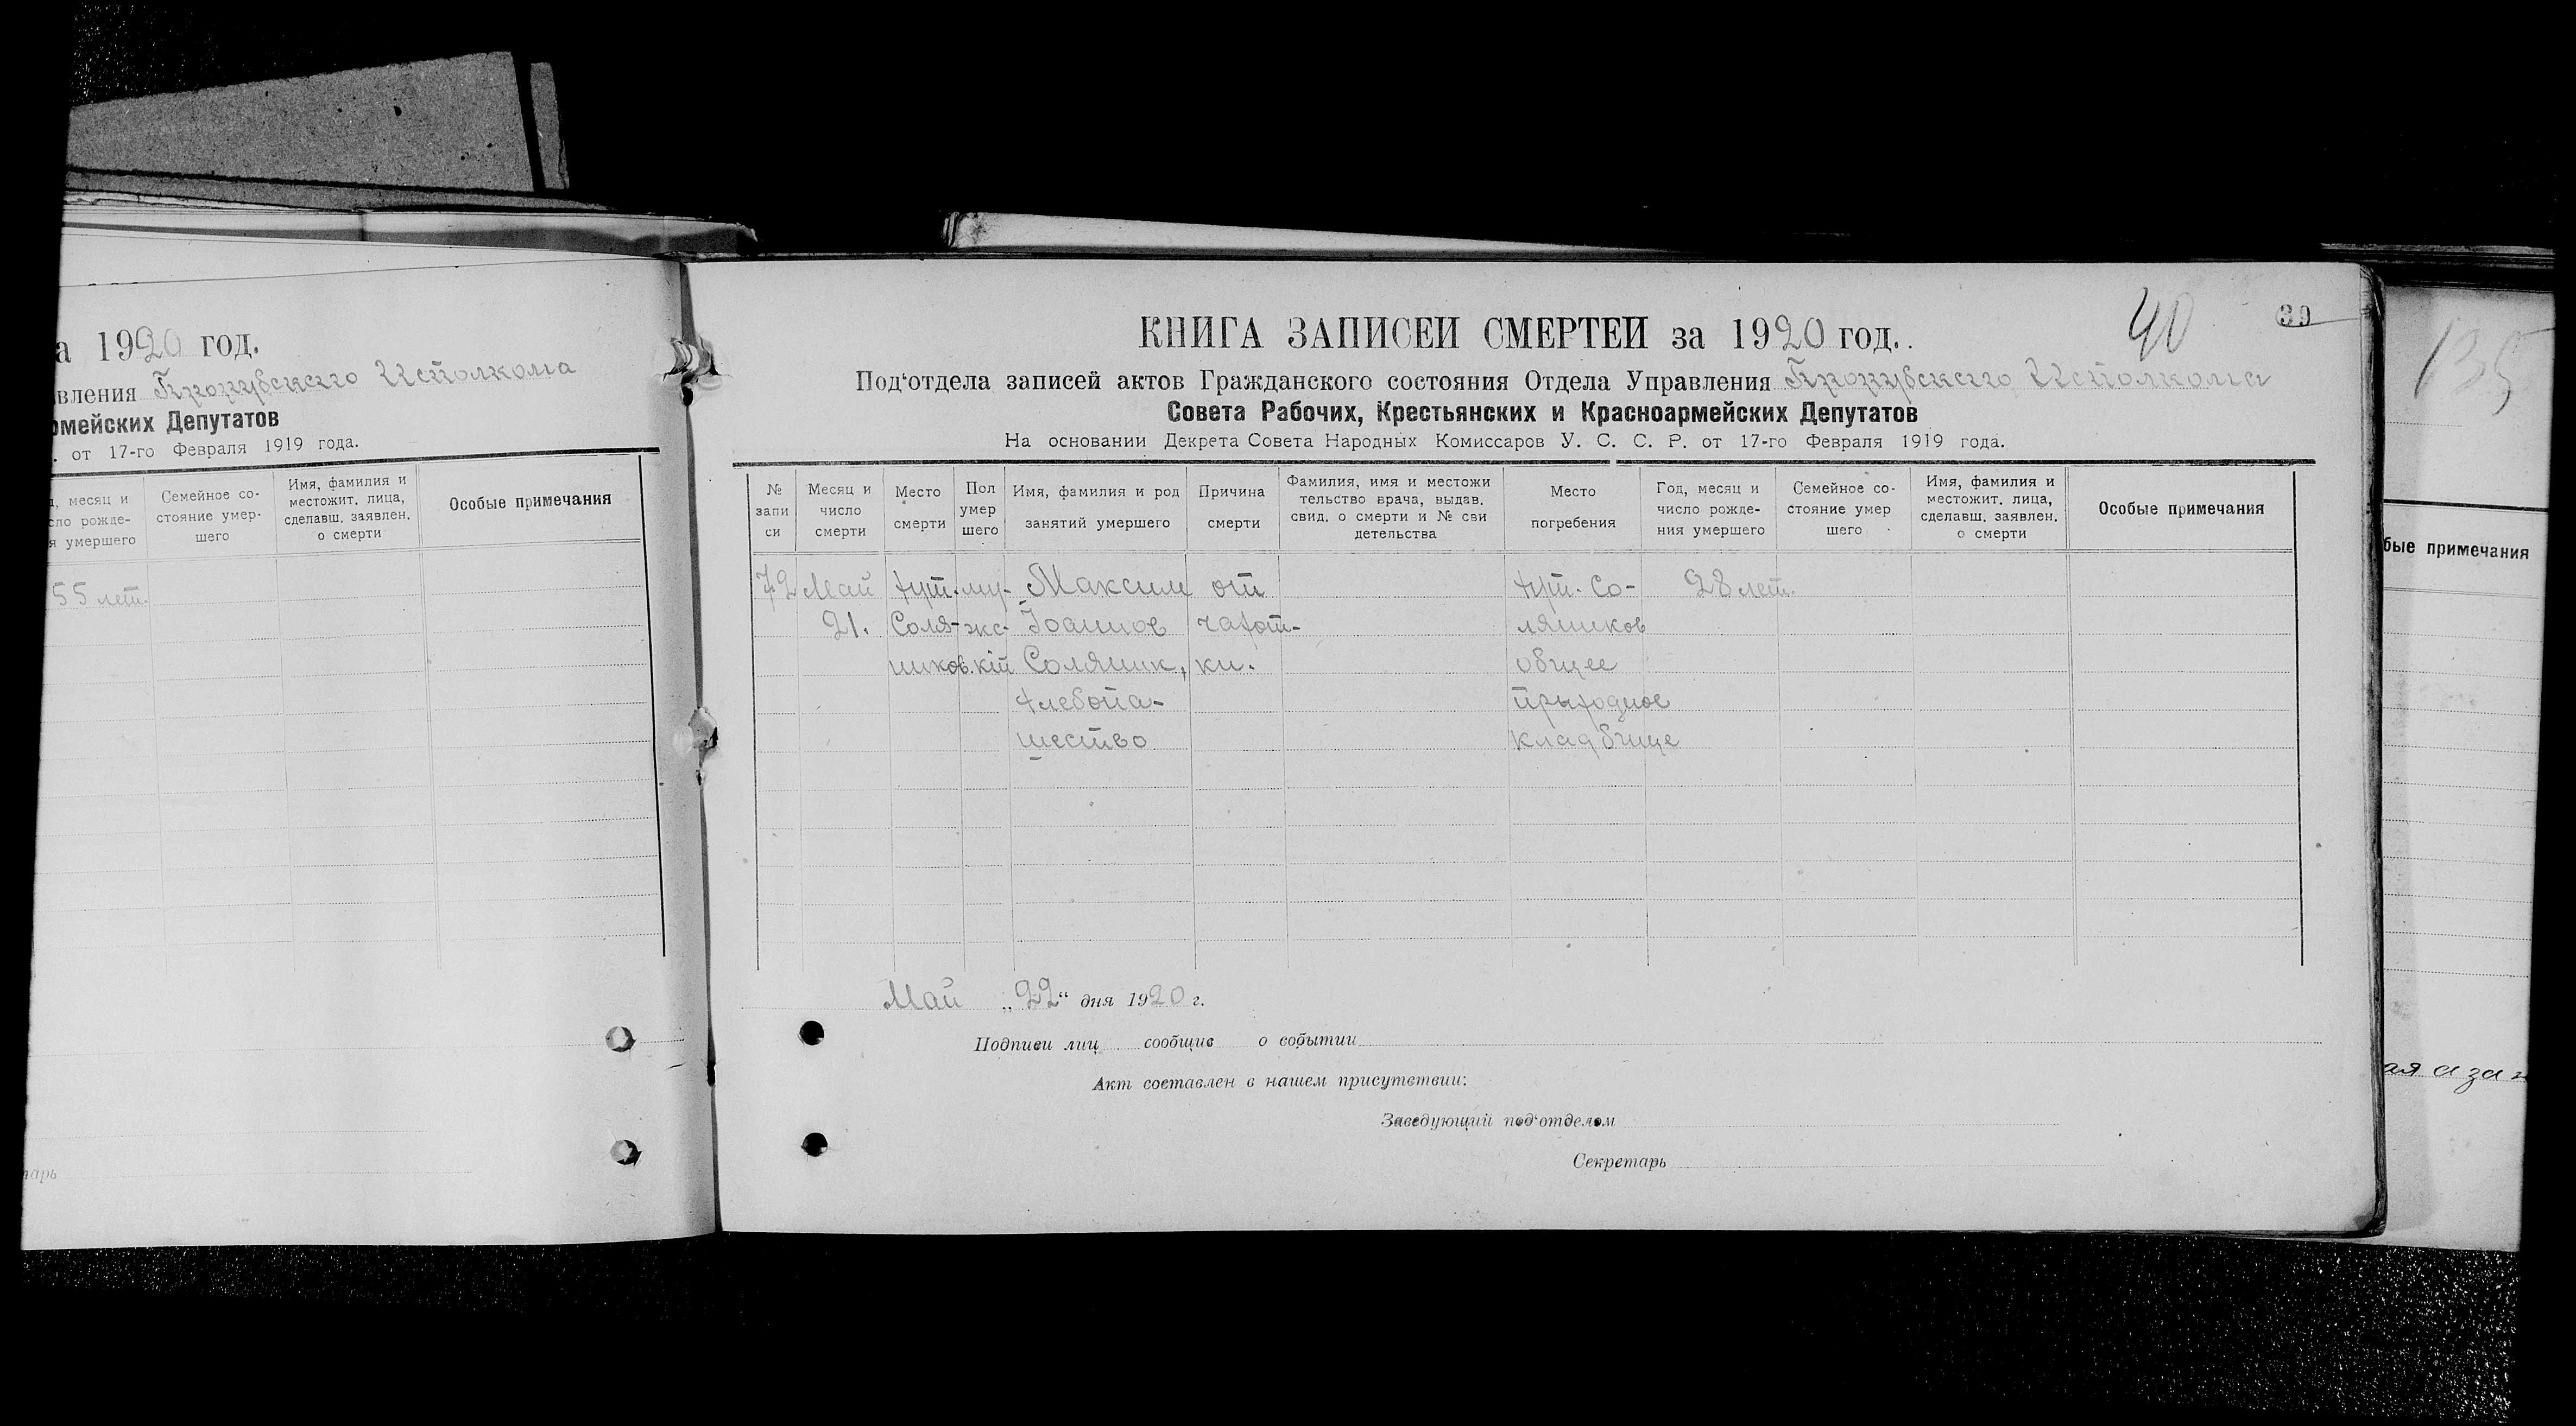 а 1920 год.
вления Прохувского Исполкома
омейских Депутатов
. от 17-го Февраля 1919 года.
д, месяц и
сло рожде-
я умершего
Семейное со-
стояние умер-
шего
Имя, фамилия и
местожит. лица,
сделавш. заявлен.
о смерти
Особые примечания
55 лет.
тарь
40
39
КНИГА ЗАПИСЕЙ СМЕРТЕЙ за 1920 год.
Под‘отдела записей актов Гражданского состояния Отдела Управления Прохувского Исполкома
Совета Рабочих, Крестьянских и Красноармейских Депутатов
На основании Декрета Совета Народных Комиссаров У. С. С. Р. от 17-го Февраля 1919 года.
№
запи
си
Месяц и
число
смерти
Место
смерти
Пол
умер
шего
Имя, фамилия и род
занятий умершего
Причина
смерти
Фамилия, имя и местожи
тельство врача, выдав.
свид. о смерти и № сви
детельства
Место
погребения
Год, месяц и
число рожде-
ния умершего
Семейное со-
стояние умер
шего
Имя, фамилия и
местожит. лица,
сделавш. заявлен.
о смерти
Особые примечания
72
Май
21.
хут.
Соля-
ников.
му-
жс-
кій
Максим
Іоаннов
Соляник,
хлебопа-
шество
от
чахот-
ки.
хут. Со-
ляников
общее
приходное
кладбище
28 лет.
Май „22“ дня 1920 г.
Подписи лиц сообщив о событии
Акт составлен в нашем присутствии:
Заведующий под‘отделом
Секретарь
135
бые примечания